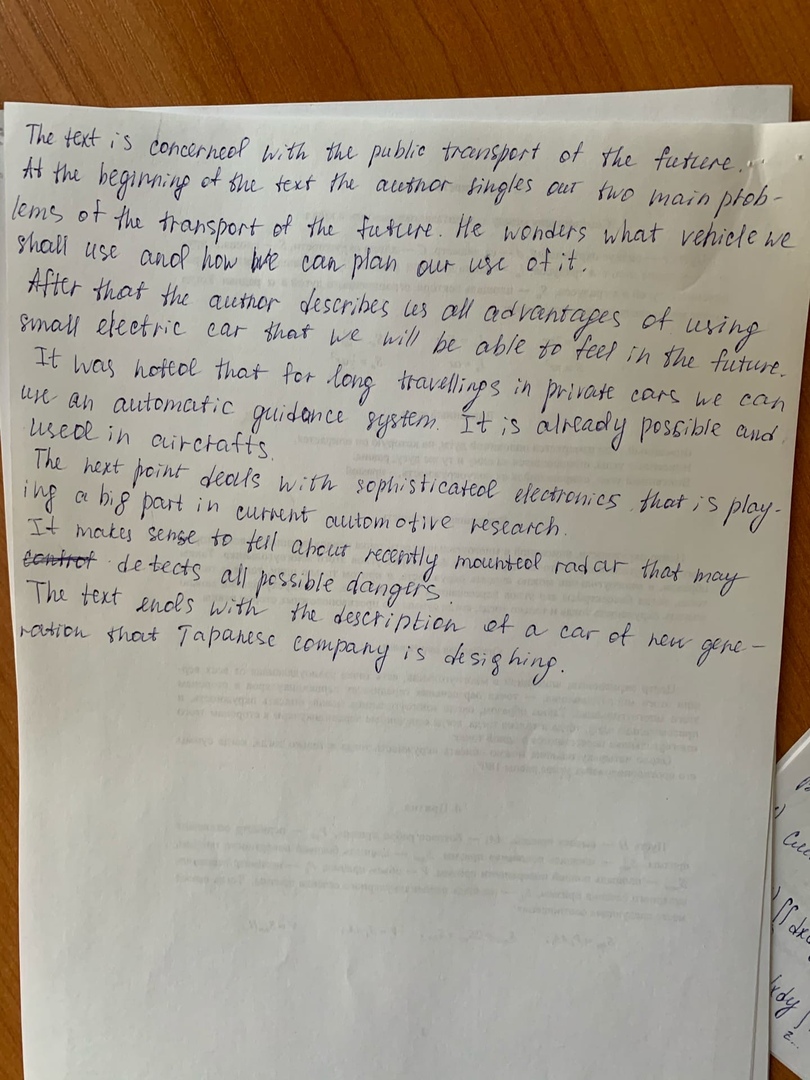 The text is concerned with the public transport of the future.
At the beginning of the text the author singles out two main prob-
lems of the transport of the future. He wonders what vehicle we
shall use and how we can plan our use of it.
After that the author describes us all advantages of using
small electric car that we will be able to feel in the future.
It was noted that for long travellings in private cars we can
use an automatic guidance system. It is already possible and
used in aircrafts.
The next point deals with sophisticated electronics that is play-
ing a big part in current automotive research.
It makes sense to tell about recently mounted radar that may
control detects all possible dangers.
The text ends with the description of a car of new gene-
ration that Japanese company is desighing.
∬ dxdy